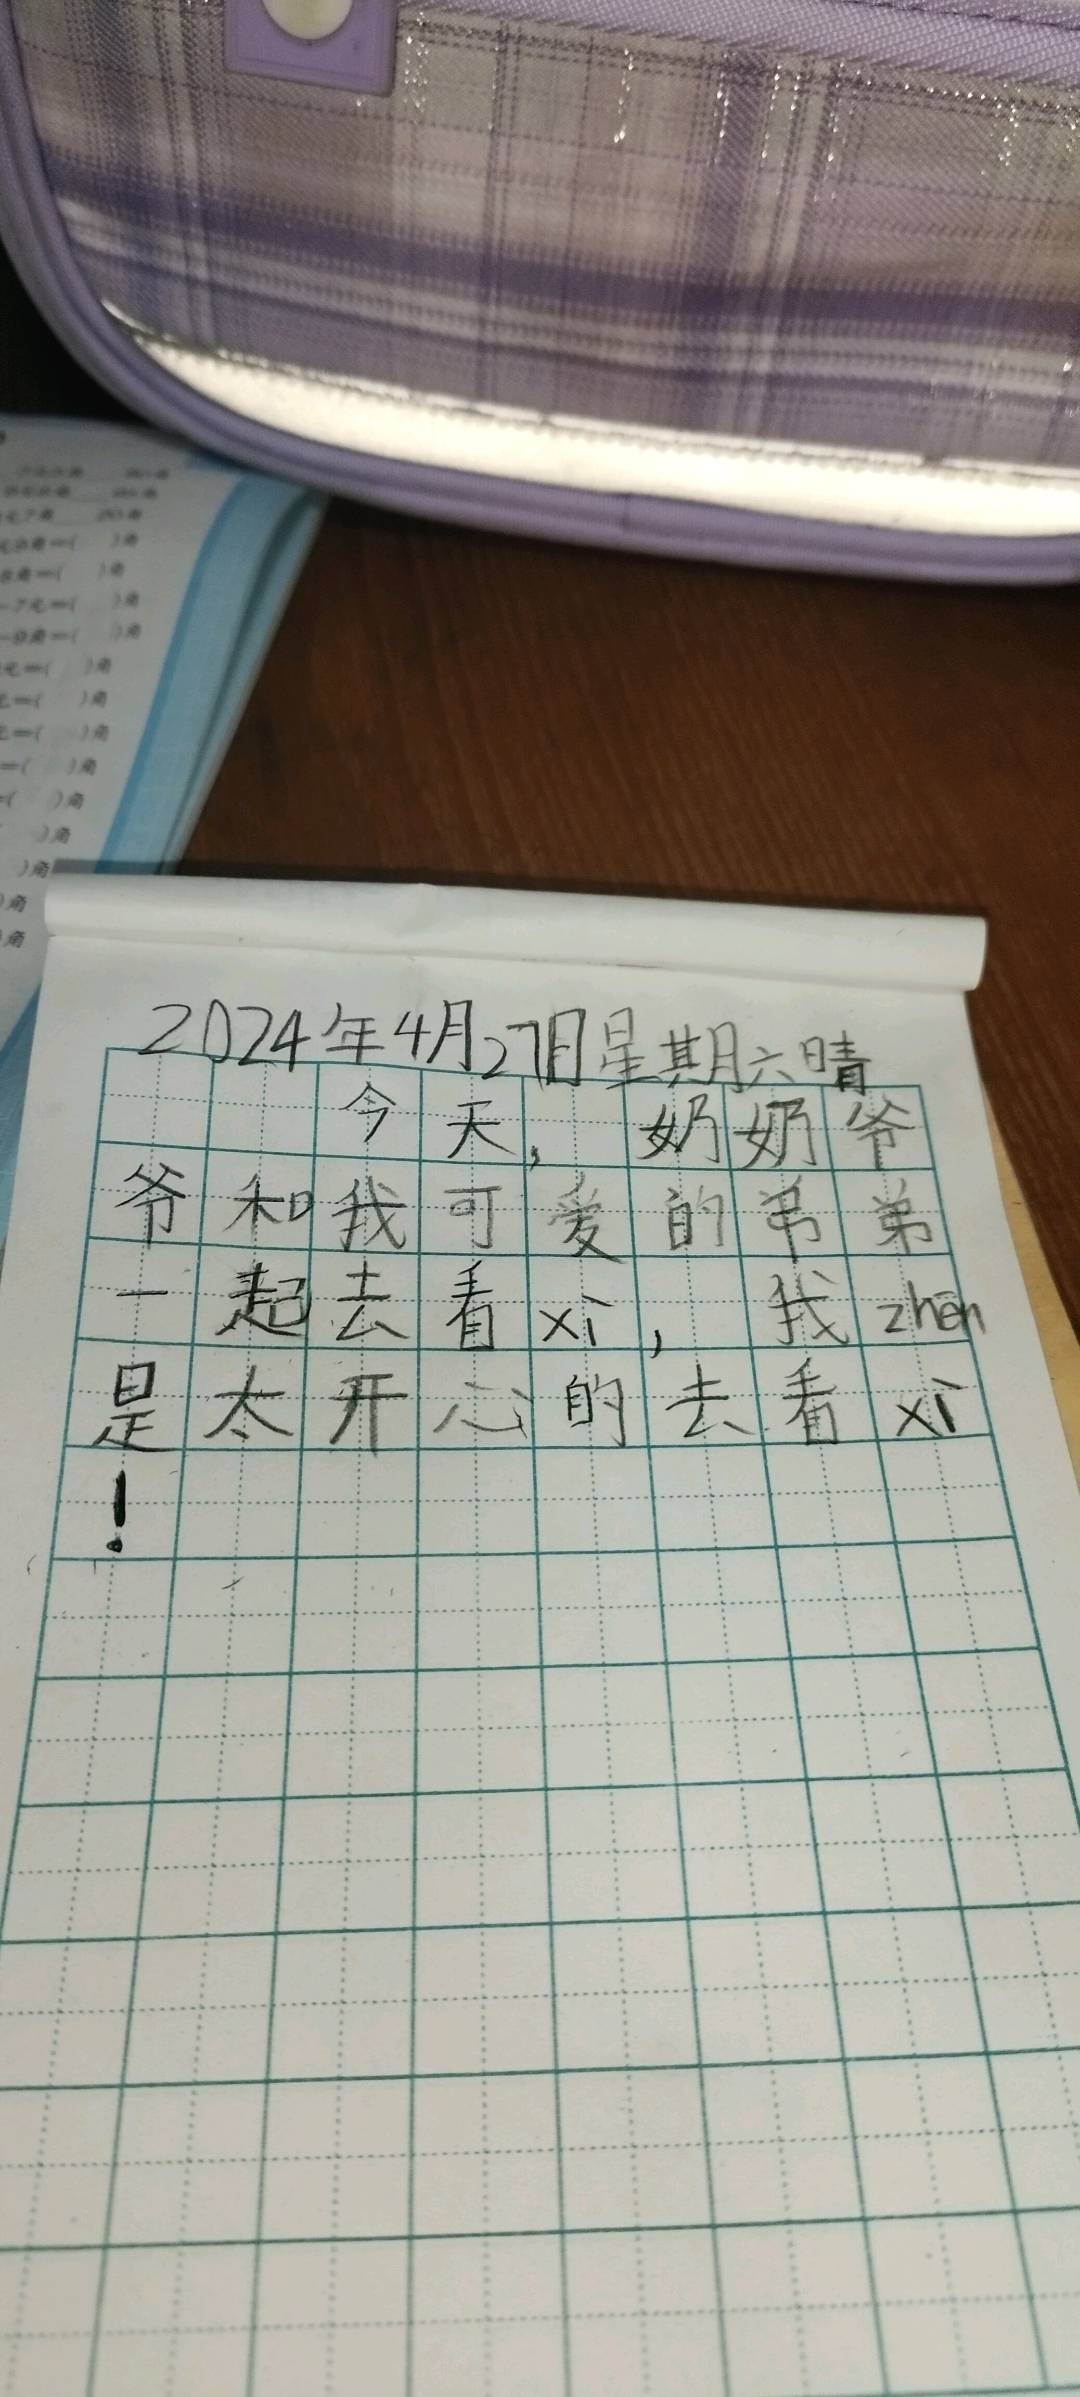 2024年4月27日星期六晴
今天，奶奶爷
爷和我可爱的弟弟
一起去看xì，我zhēn
是太开心的去看xì
！